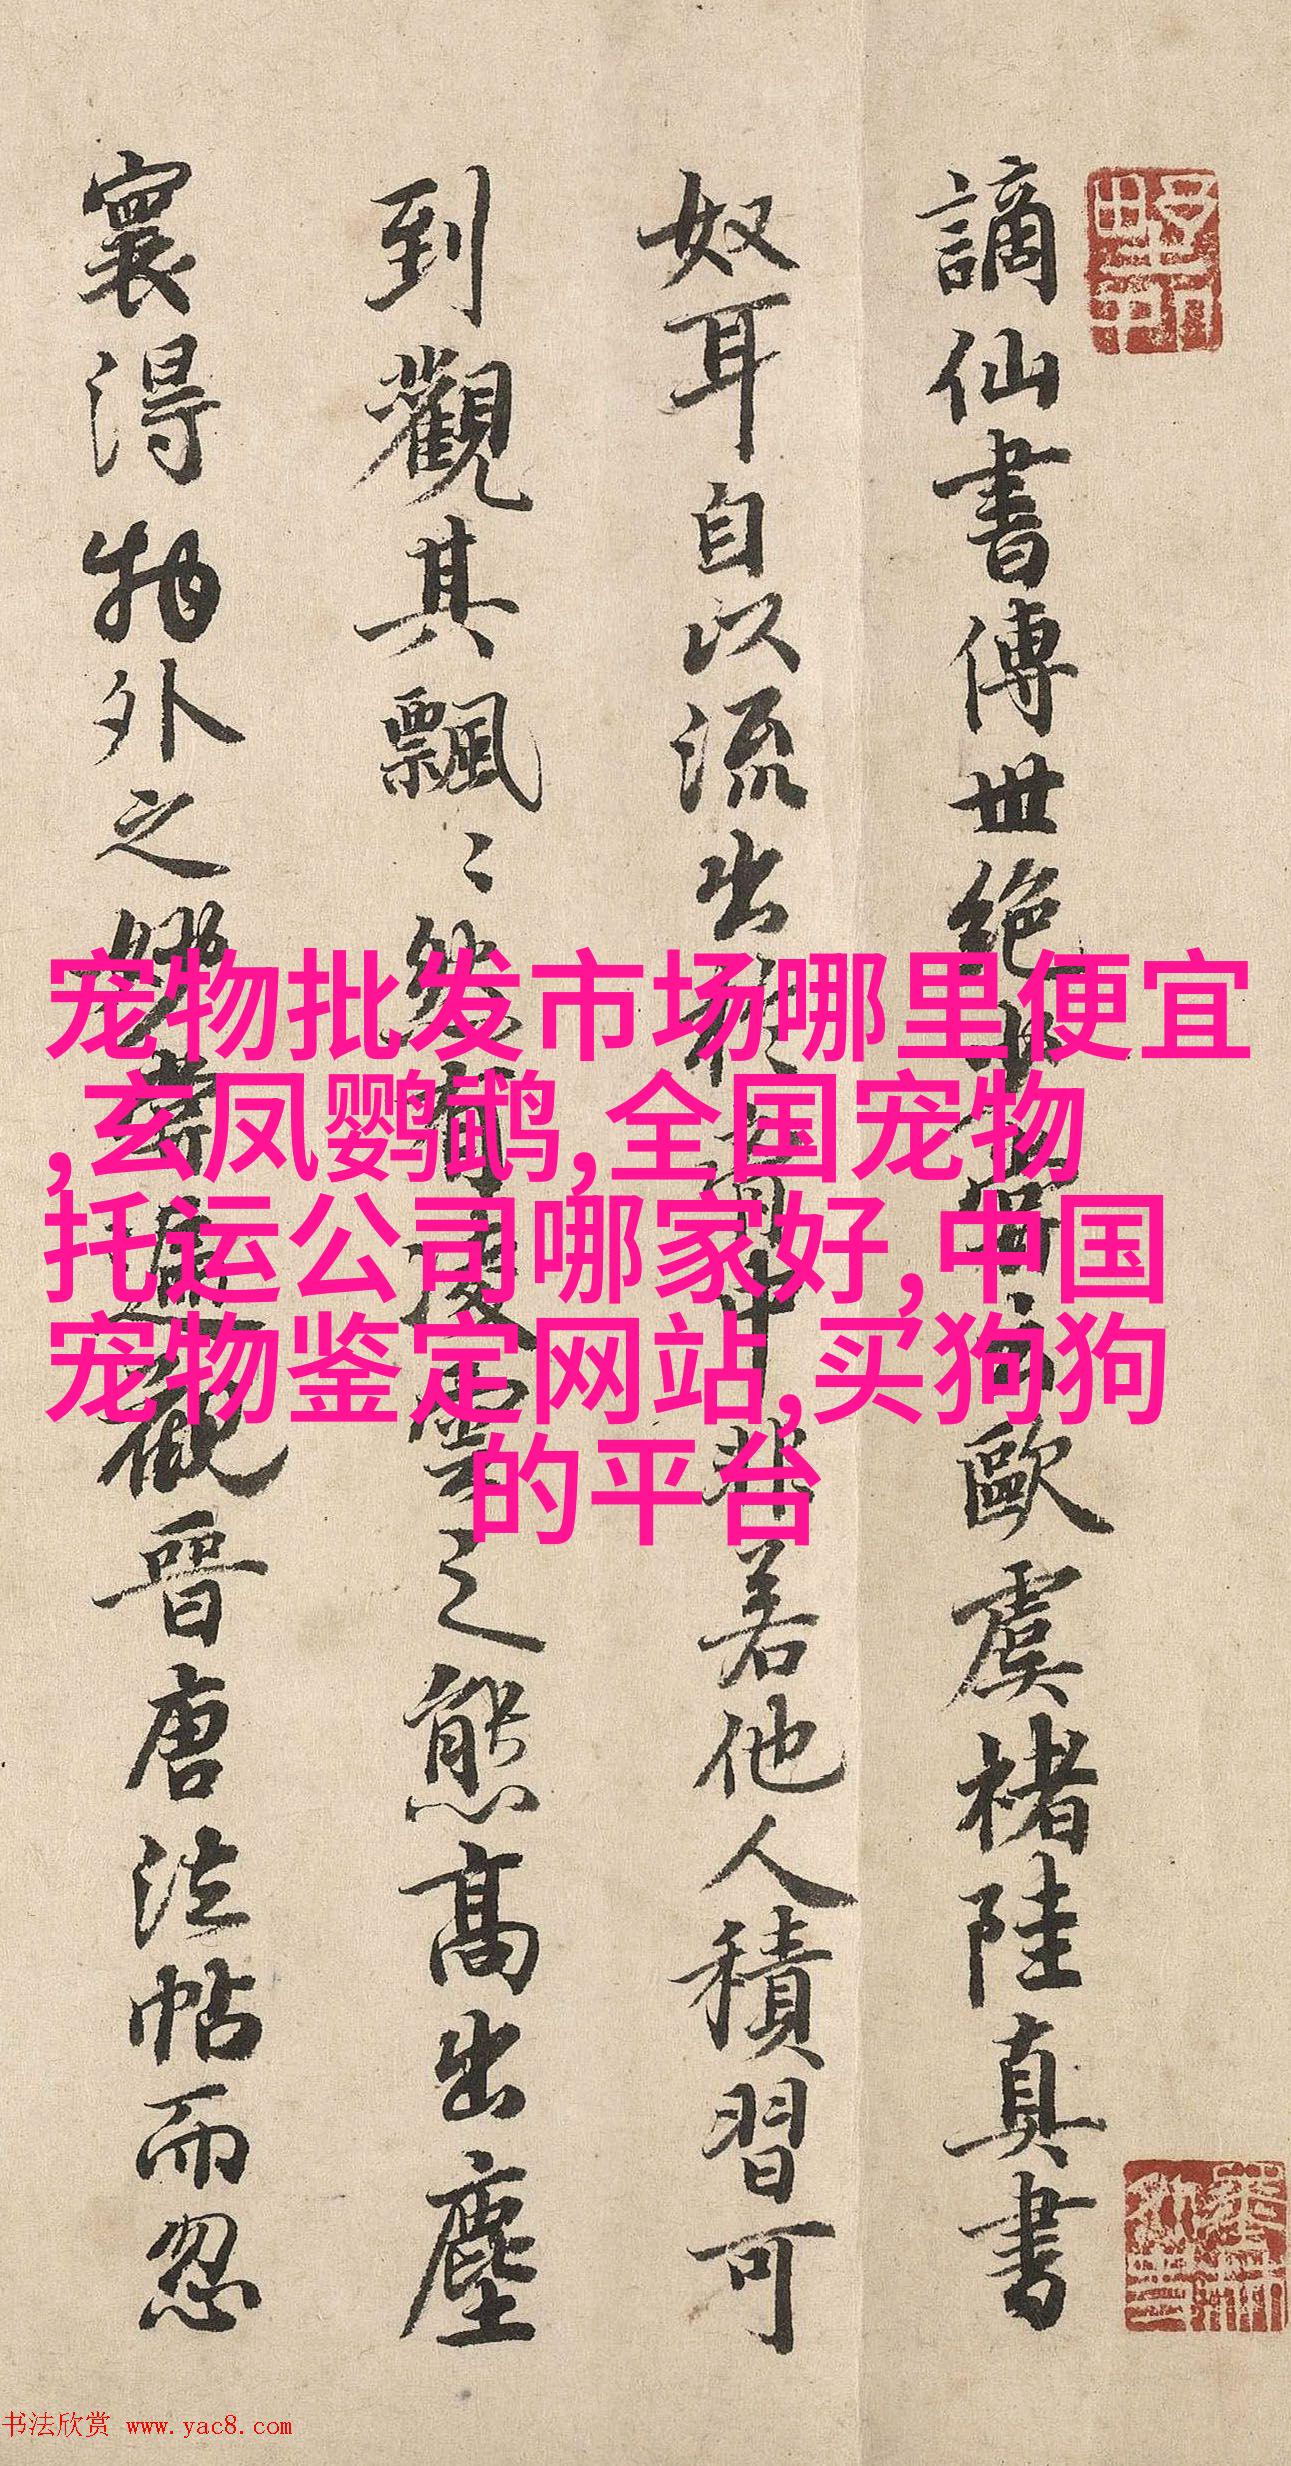 謫仙書傳世絕少嘗云歐虞褚陸真書
奴耳自以流出於胷中非若他人積習可
到觀其飄〻然有凌雲之態高出塵
寰得物外之妙嘗遍觀晉唐法帖而忽
宠物批发市场哪里便宜
,玄凤鹦鹉,全国宠物
托运公司哪家好,中国
宠物鉴定网站,买狗狗
的平台
书法欣赏 www.yac8.com